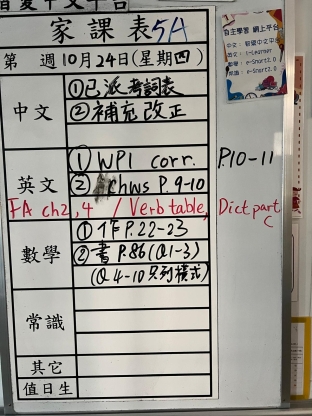 智愛中文平台
家課表5A
第 週10月24日(星期四)
中文
①已派考詞表
②補充改正
英文
①WP1 corr. P.10-11
② chws P.9-10
FA ch2,4 / Verb table, Dict part C
數學
①作P.22-23
②書P.86(Q1-3)
(Q4-10只列橫式)
常識
其它
值日生
自主學習 網上平台
中文: 智愛中文平台
英文: i-Learner
數學: e-Smart2.0
常識: e-Smart2.0